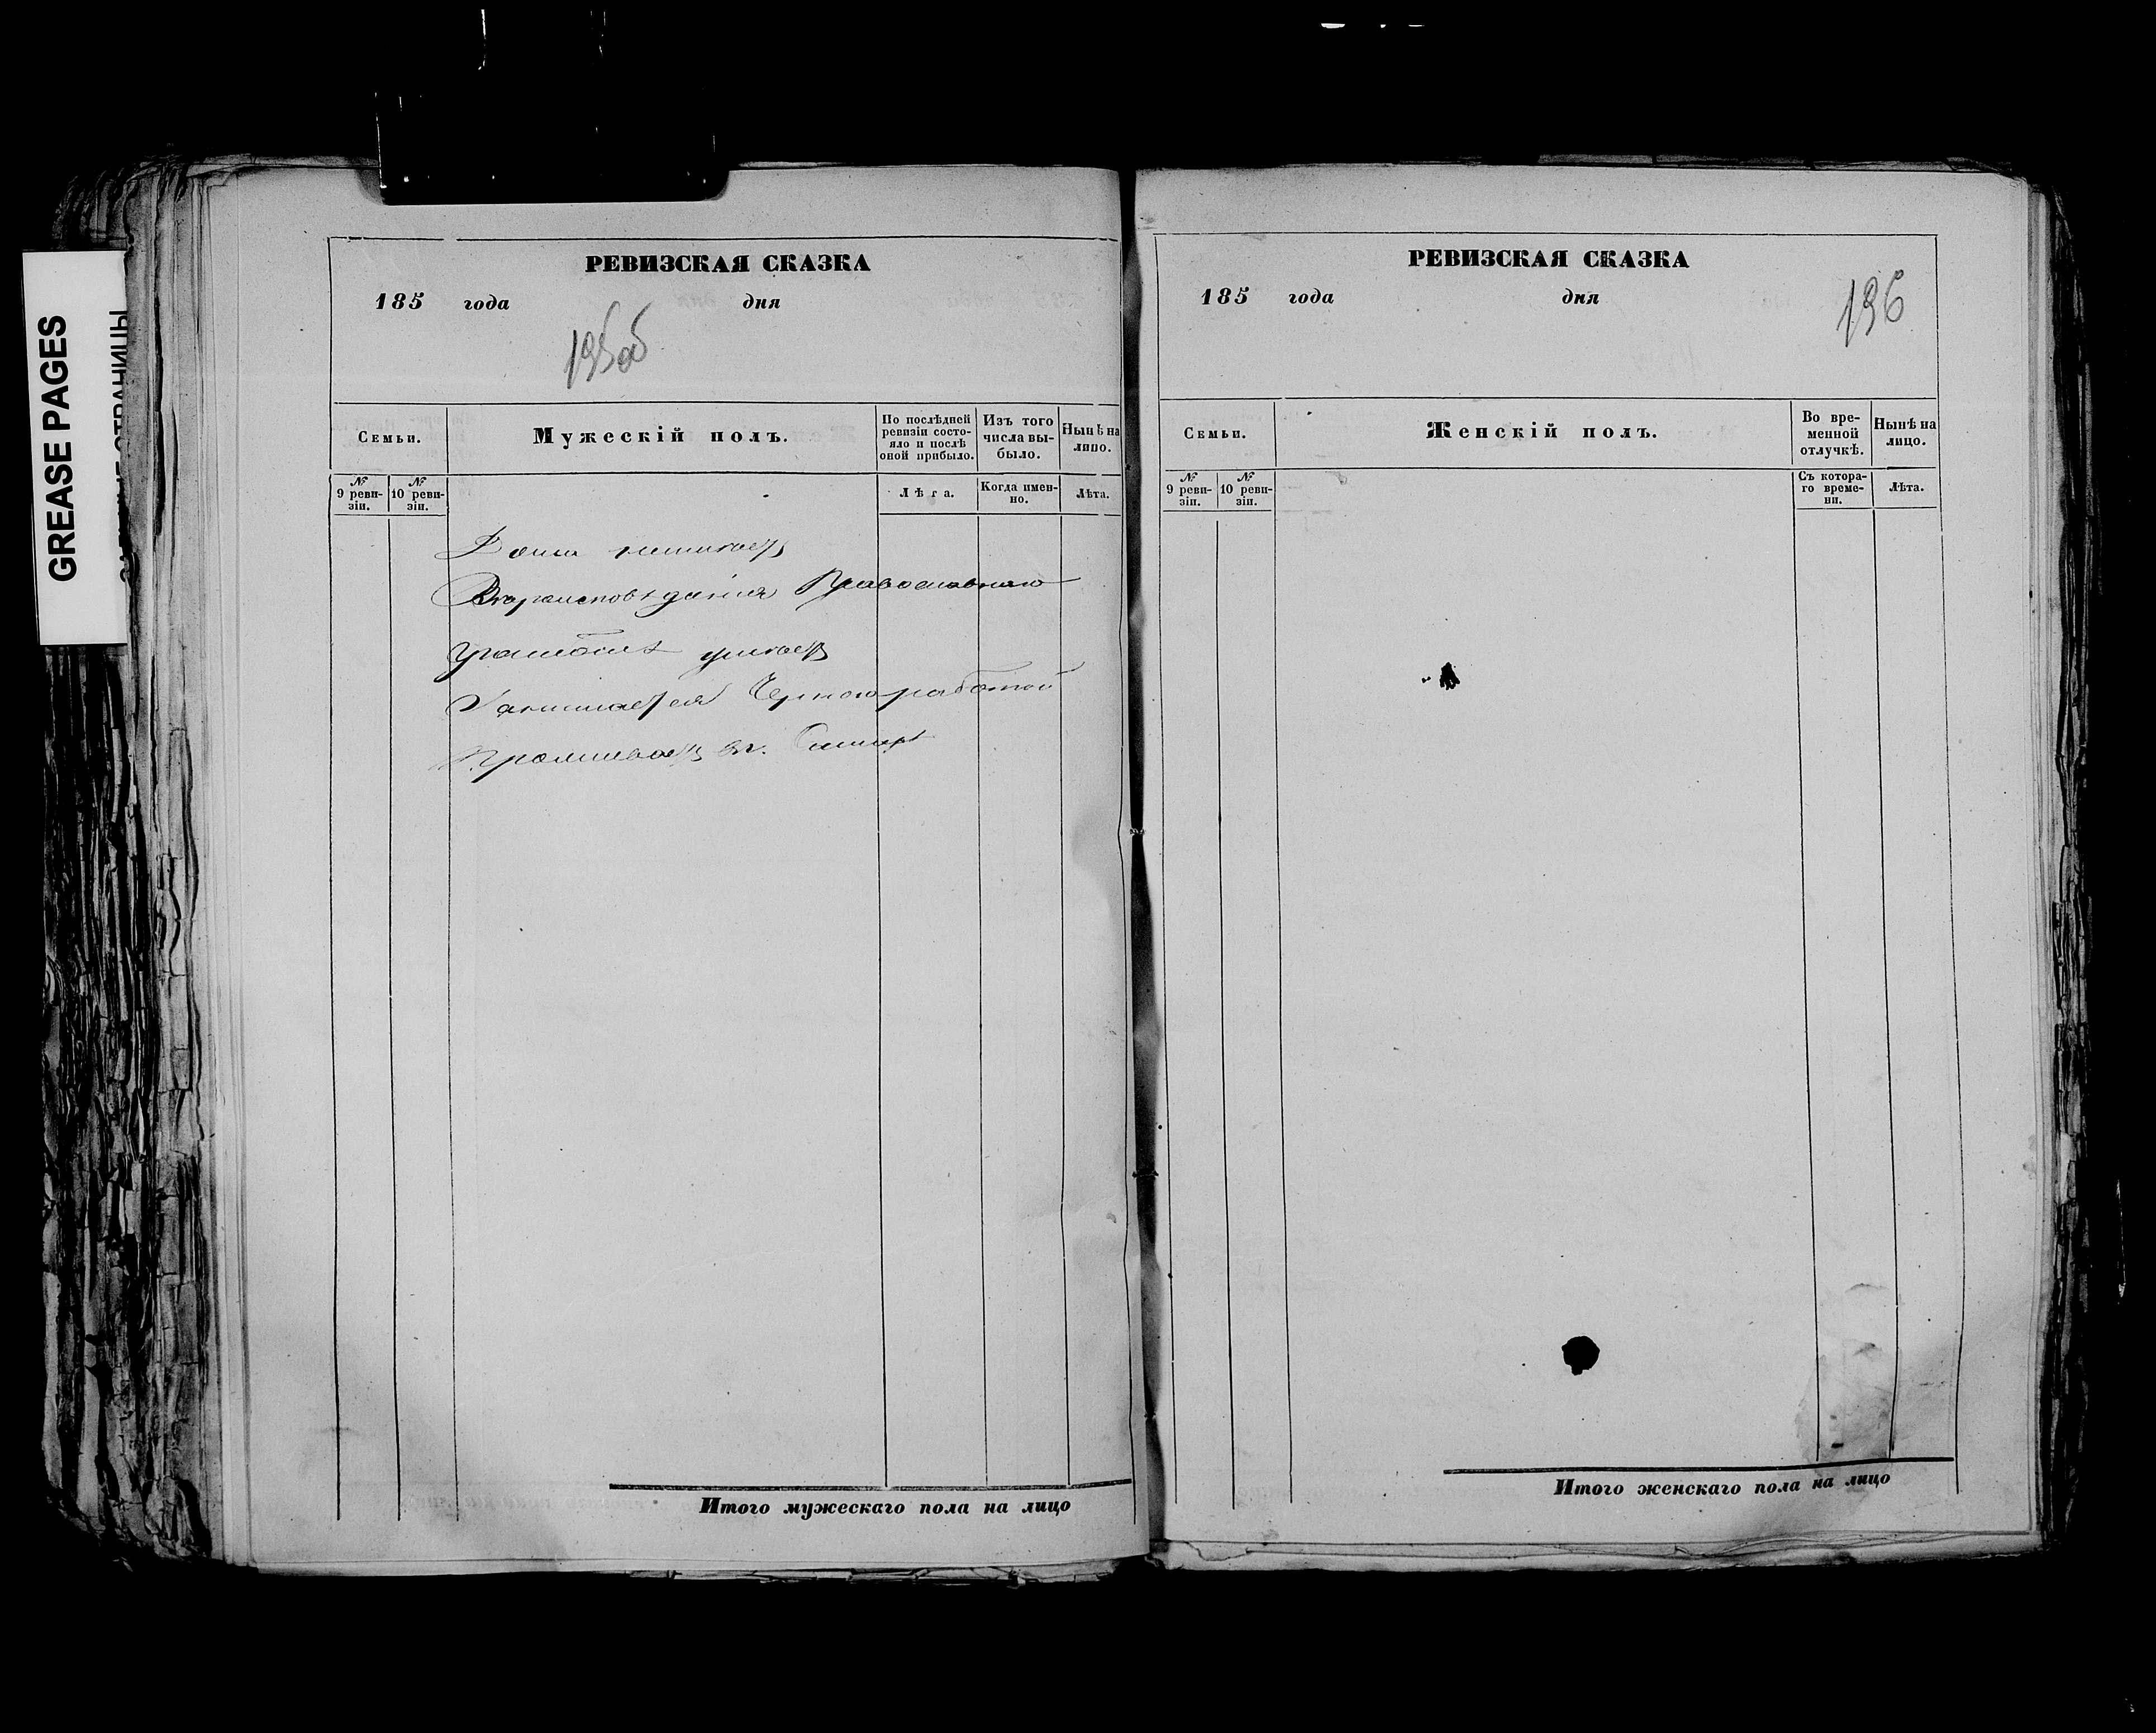 GREASE PAGES
РЕВИЗСКАЯ СКАЗКА
185 года дня
195об
Семьи.
Мужескій полъ.
По послѣдней ревизіи состояло и послѣ оной прибыло.
Изъ того числа выбыло.
Нынѣ на лицо.
№ 9 ревизіи.
№ 10 ревизіи.
Лѣта.
Когда именно.
Лѣта.
Дома неимѣетъ
Вѣроисповѣданія Православнаго
Грамотѣ умѣетъ
Занимается Черною работой
Проживаетъ въ г.
Итого мужескаго пола на лицо
РЕВИЗСКАЯ СКАЗКА
185 года дня
196
Семьи.
Женскій полъ.
Во временной отлучкѣ.
Нынѣ на лицо.
№ 9 ревизіи.
№ 10 ревизіи.
Съ котораго времени.
Лѣта.
Итого женскаго пола на лицо